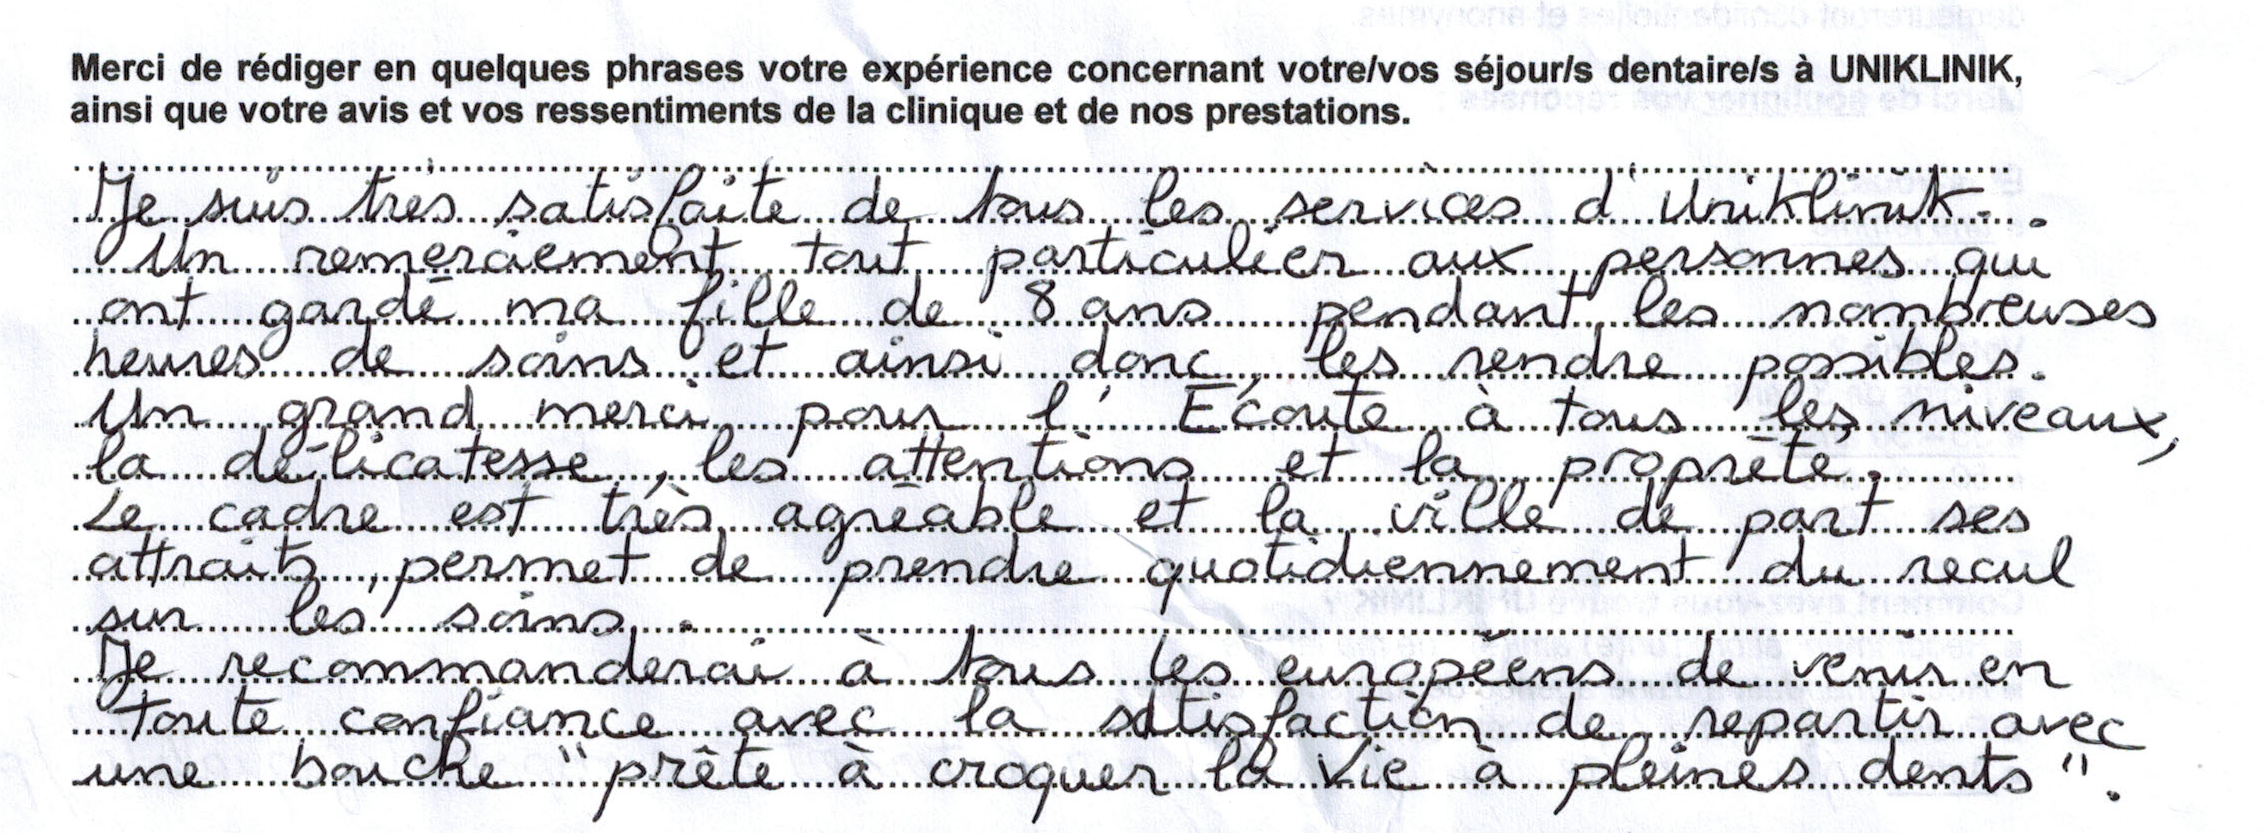 Merci de rédiger en quelques phrases votre expérience concernant votre/vos séjour/s dentaire/s à UNIKLINIK,
ainsi que votre avis et vos ressentiments de la clinique et de nos prestations.
Je suis très satisfaite de tous les services d'Uniklinik.
Un remerciement tout particulier aux personnes qui
ont gardé ma fille de 8 ans pendant les nombreuses
heures de soins et ainsi donc les rendre possibles.
Un grand merci pour l'Écoute à tous les niveaux,
la délicatesse, les attentions et la propreté.
Le cadre est très agréable et la ville de part ses
attraits, permet de prendre quotidiennement du recul
sur les soins.
Je recommanderai à tous les européens de venir en
toute confiance avec la satisfaction de repartir avec
une bouche "prête à croquer la vie à pleines dents".